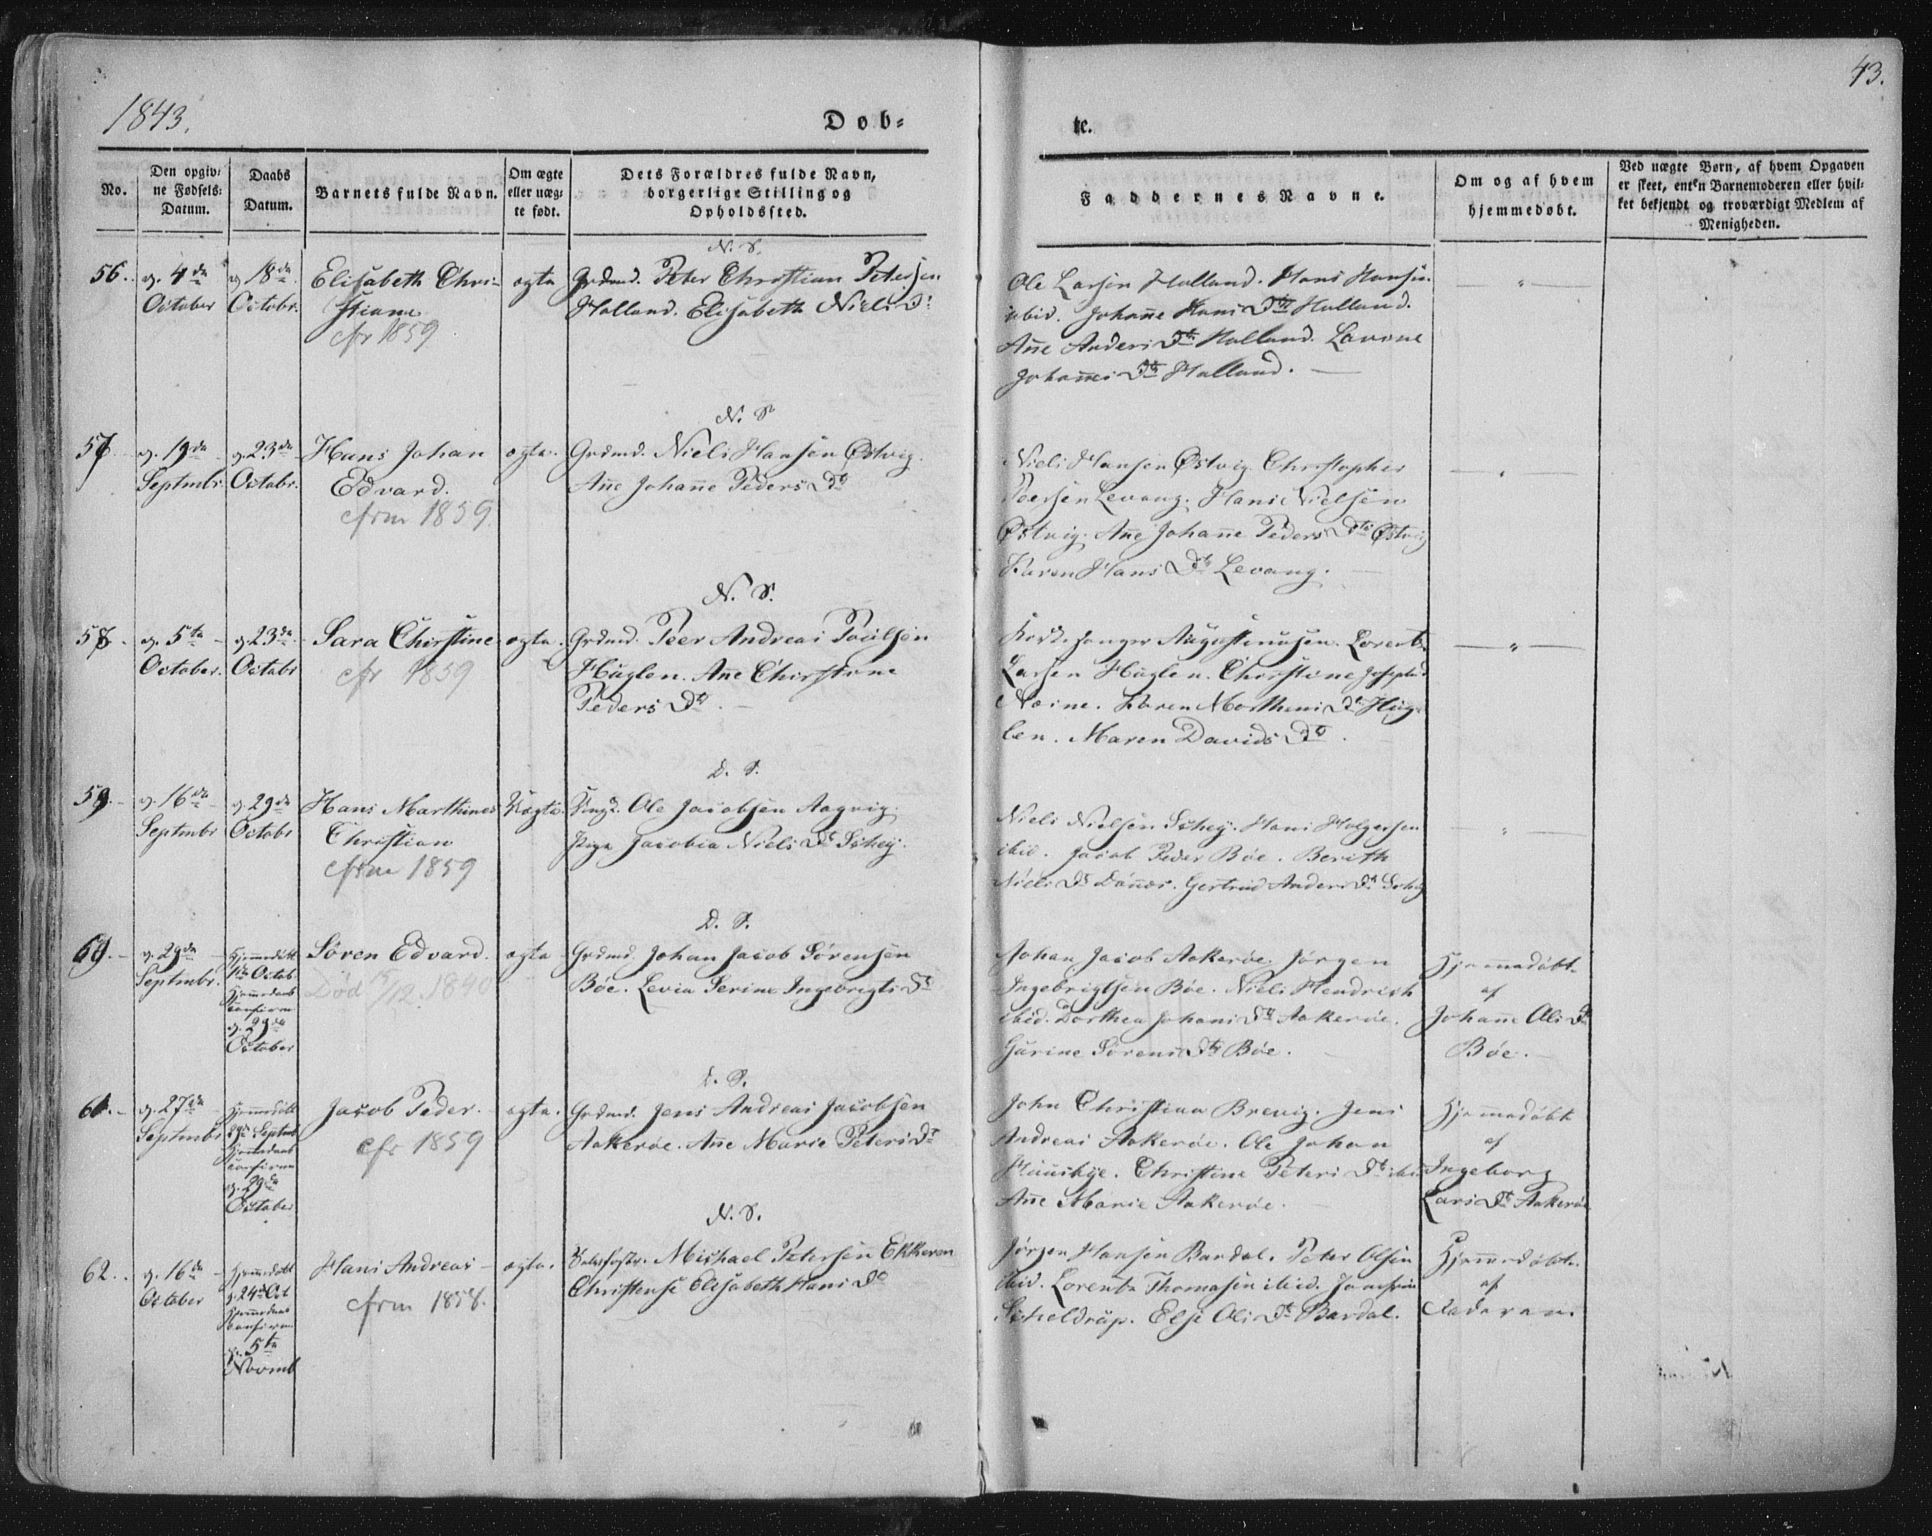 1843.
Døb-
te.
43.
No.
Den opgiv-
ne Fødsels-
Datum.
Daabs
Datum.
Barnets fulde Navn.
Om ægte
eller uæg-
te født.
Dets Forældres fulde Navn,
borgerlige Stilling og
Opholdssted.
Faddernes Navne.
Om og af hvem
hjemmedøbt.
Ved uægte Børn, af hvem Opgaven
er skeet, enten Barnemoderen eller hvil-
ket bekjendt og troværdigt Medlem af
Menigheden.
N. S.
56.
d. 4de
October
d. 18de
Octobr.
Elisabeth Chri-
stiane
cfr 1859
ægte
Grdmd. Peter Christian Petersen
Holland. Elisabeth Niels Dr
Ole Larsen Holland. Hans Hansen
ibid. Johanne Hans Dtr Holland.
Ane Anders Dtr Holland. Lavine
Johannes Dtr Holland.
N. S
57
d. 19de
Septmbr
d. 23de
Octobr.
Hans Johan
Edvard.
cfrm 1859
ægte.
Grdmd. Niels Hansen Østvig.
Ane Johanne Peders Dtr
Niels Hansen Østvig. Christopher
Peersen Levang. Hans Nielsen
Østvig. Ane Johanne Peders Dtr Østvig
Karen Hans Dtr Levang.
N. S.
58
d. 5te
October.
d. 23de
Octobr
Sara Christine
cfr 1859
ægte.
Grdmd. Peer Andreas Poulsen
Huglen. Ane Christine
Peders Dtr.
Kirkesanger Augustinusen. Lorents
Larsen Huglen. Christine Josephs
Karen Marthens Dtr Hug-
len. Maren Davids Dtr.
D. S.
59.
d. 16de
Septmbr
d. 29de
Octobr
Hans Marthines
Christian
cfrm 1859
Uægte.
Ungk. Ole Jacobsen Aagvig.
Pige Jacobia Niels Dr Sihey.
Niels Nielsen Sihey. Hans Holgersen
ibid. Jacob Peder Bøe. Berith
Niels Dr Dønnes. Gertrud Anders Dtr Sihey
D. S.
60.
d. 29de
Septmbr.
Hjemmedøbt
1ste Octob
Hjemedaab
Confirm
d. 29de
October
Søren Edvard.
ægte
Grdmd. Johan Jacob Sørensen
Bøe. Levia Serine Ingebrigts Dr
Johan Jacob Aakerøe. Jørgen
Ingebrigtsen Bøe. Niels Hendrich
ibid. Dorthea Johans Dtr Aakerøe.
Gurine Sørens Dtr Bøe.
Hjemmedøbt
af
Johanne Ols Dr
Bøe.
D. S.
61.
d. 27de
Septmbr
Hjemmedøbt
Septmb
Hjemedaab
Confirm
d. 29de
October
Jacob Peder.
cfr 1859
ægte.
Grdmd. Jens Andreas Jacobsen
Aakerøe. Ane Marie Peters Dr
John Christian Brevig. Jens
Andreas Aakerøe. Ole Johan
Huusbye. Christine Peters Dtr ibid
Ane Marie Aakerøe.
Hjemmedøbt
af
Ingeborg
Lars Dr Aakerøe
N. S.
62.
d. 16de
October
Hjemmedøbt
d. 24de Oct
Hjemmedaab
Confirm
d. 5te
Novmb
Hans Andreas
cfrm 1858.
ægte.
Michael Petersen Ekkeren
Christense Elisabeth Hans Dr
Jørgen Hansen Bardal. Peter Olsen
ibid. Lorents Thomasen ibid.
Scheldrup. Else Ols Dtr Bardal.
Hjemmedøbt
af
Faderen.